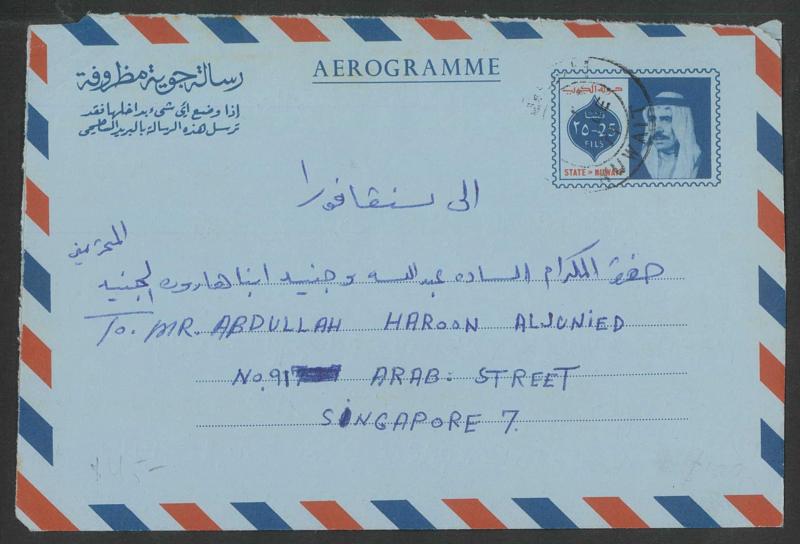 رسالة جوية مظروفة
AEROGRAMME
إذا وضع أي شيء بداخلها فقد
ترسل هذه الرسالة بالبريد السطحي
دولة الكويت
٢٥ - 25
FILS
STATE OF KUWAIT
KUWAIT
الى سنقافورا
المحترمين
حضرة المكرام الساده عبدالله وجنيد ابنا هارون الجنيد
To. MR. ABDULLAH HAROON ALJUNIED
No. 91 ARAB: STREET
SINGAPORE 7.